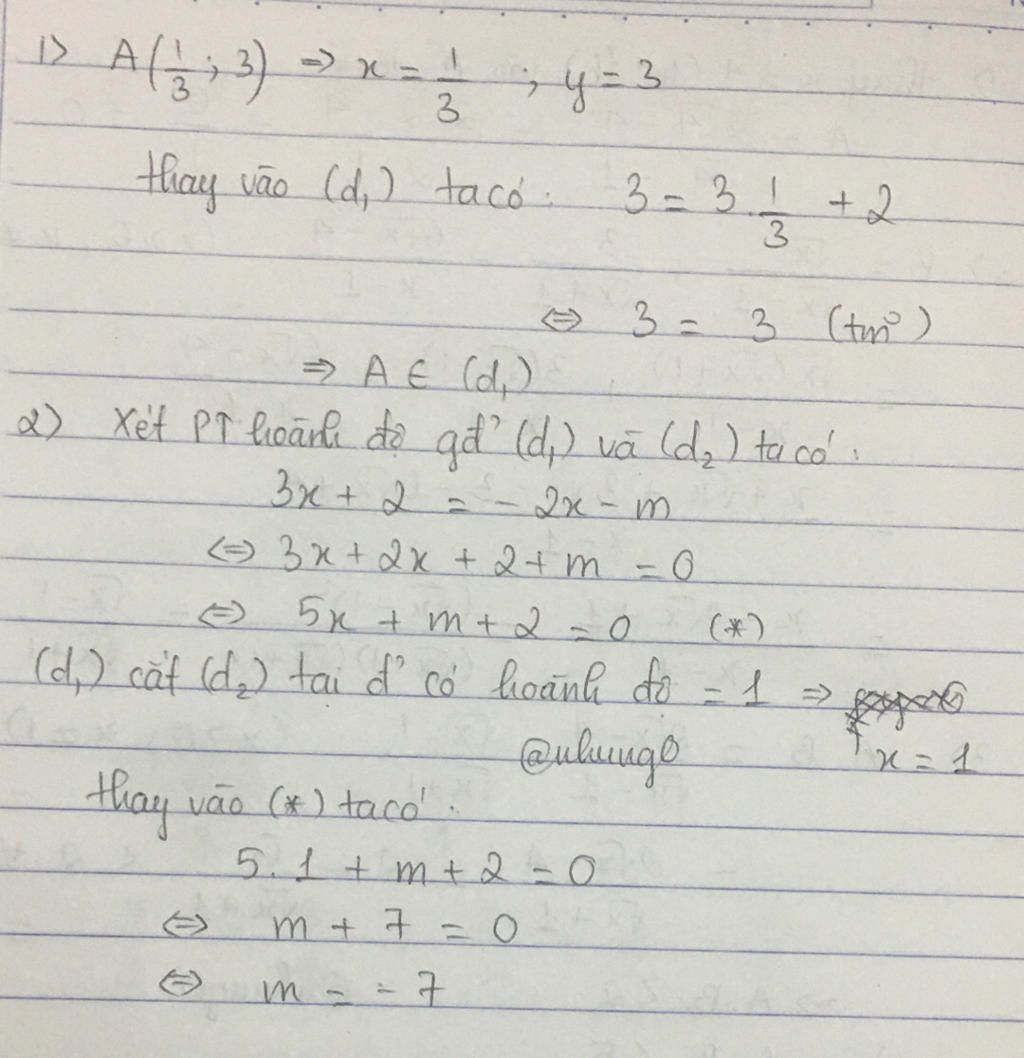 1> A(1/3; 3) ⇒ x = 1/3 ; y = 3
thay vào (d₁) ta có: 3 = 3.1/3 + 2
⇔ 3 = 3 (tm)
⇒ A ∈ (d₁)
2) Xét PT hoành độ gđ' (d₁) và (d₂) ta có:
3x + 2 = - 2x - m
⇔ 3x + 2x + 2 + m = 0
⇔ 5x + m + 2 = 0 (*)
(d₁) cắt (d₂) tại đ' có hoành độ = 1 ⇒
x = 1
thay vào (*) ta có:
5.1 + m + 2 = 0
⇔ m + 7 = 0
⇔ m = - 7